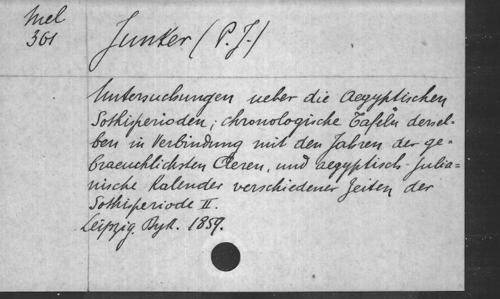 Mel
361
Junker (P. J.)
Untersuchungen ueber die Aegyptischen
Sothisperioden; chronologische Tafeln dersel-
ben in Verbindung mit den Jahren der ge-
braeuchlichsten Aeren, und aegyptisch-Julia-
nische Kalender verschiedener Zeiten der
Sothisperiode II.
Leipzig. Dyk. 1859.